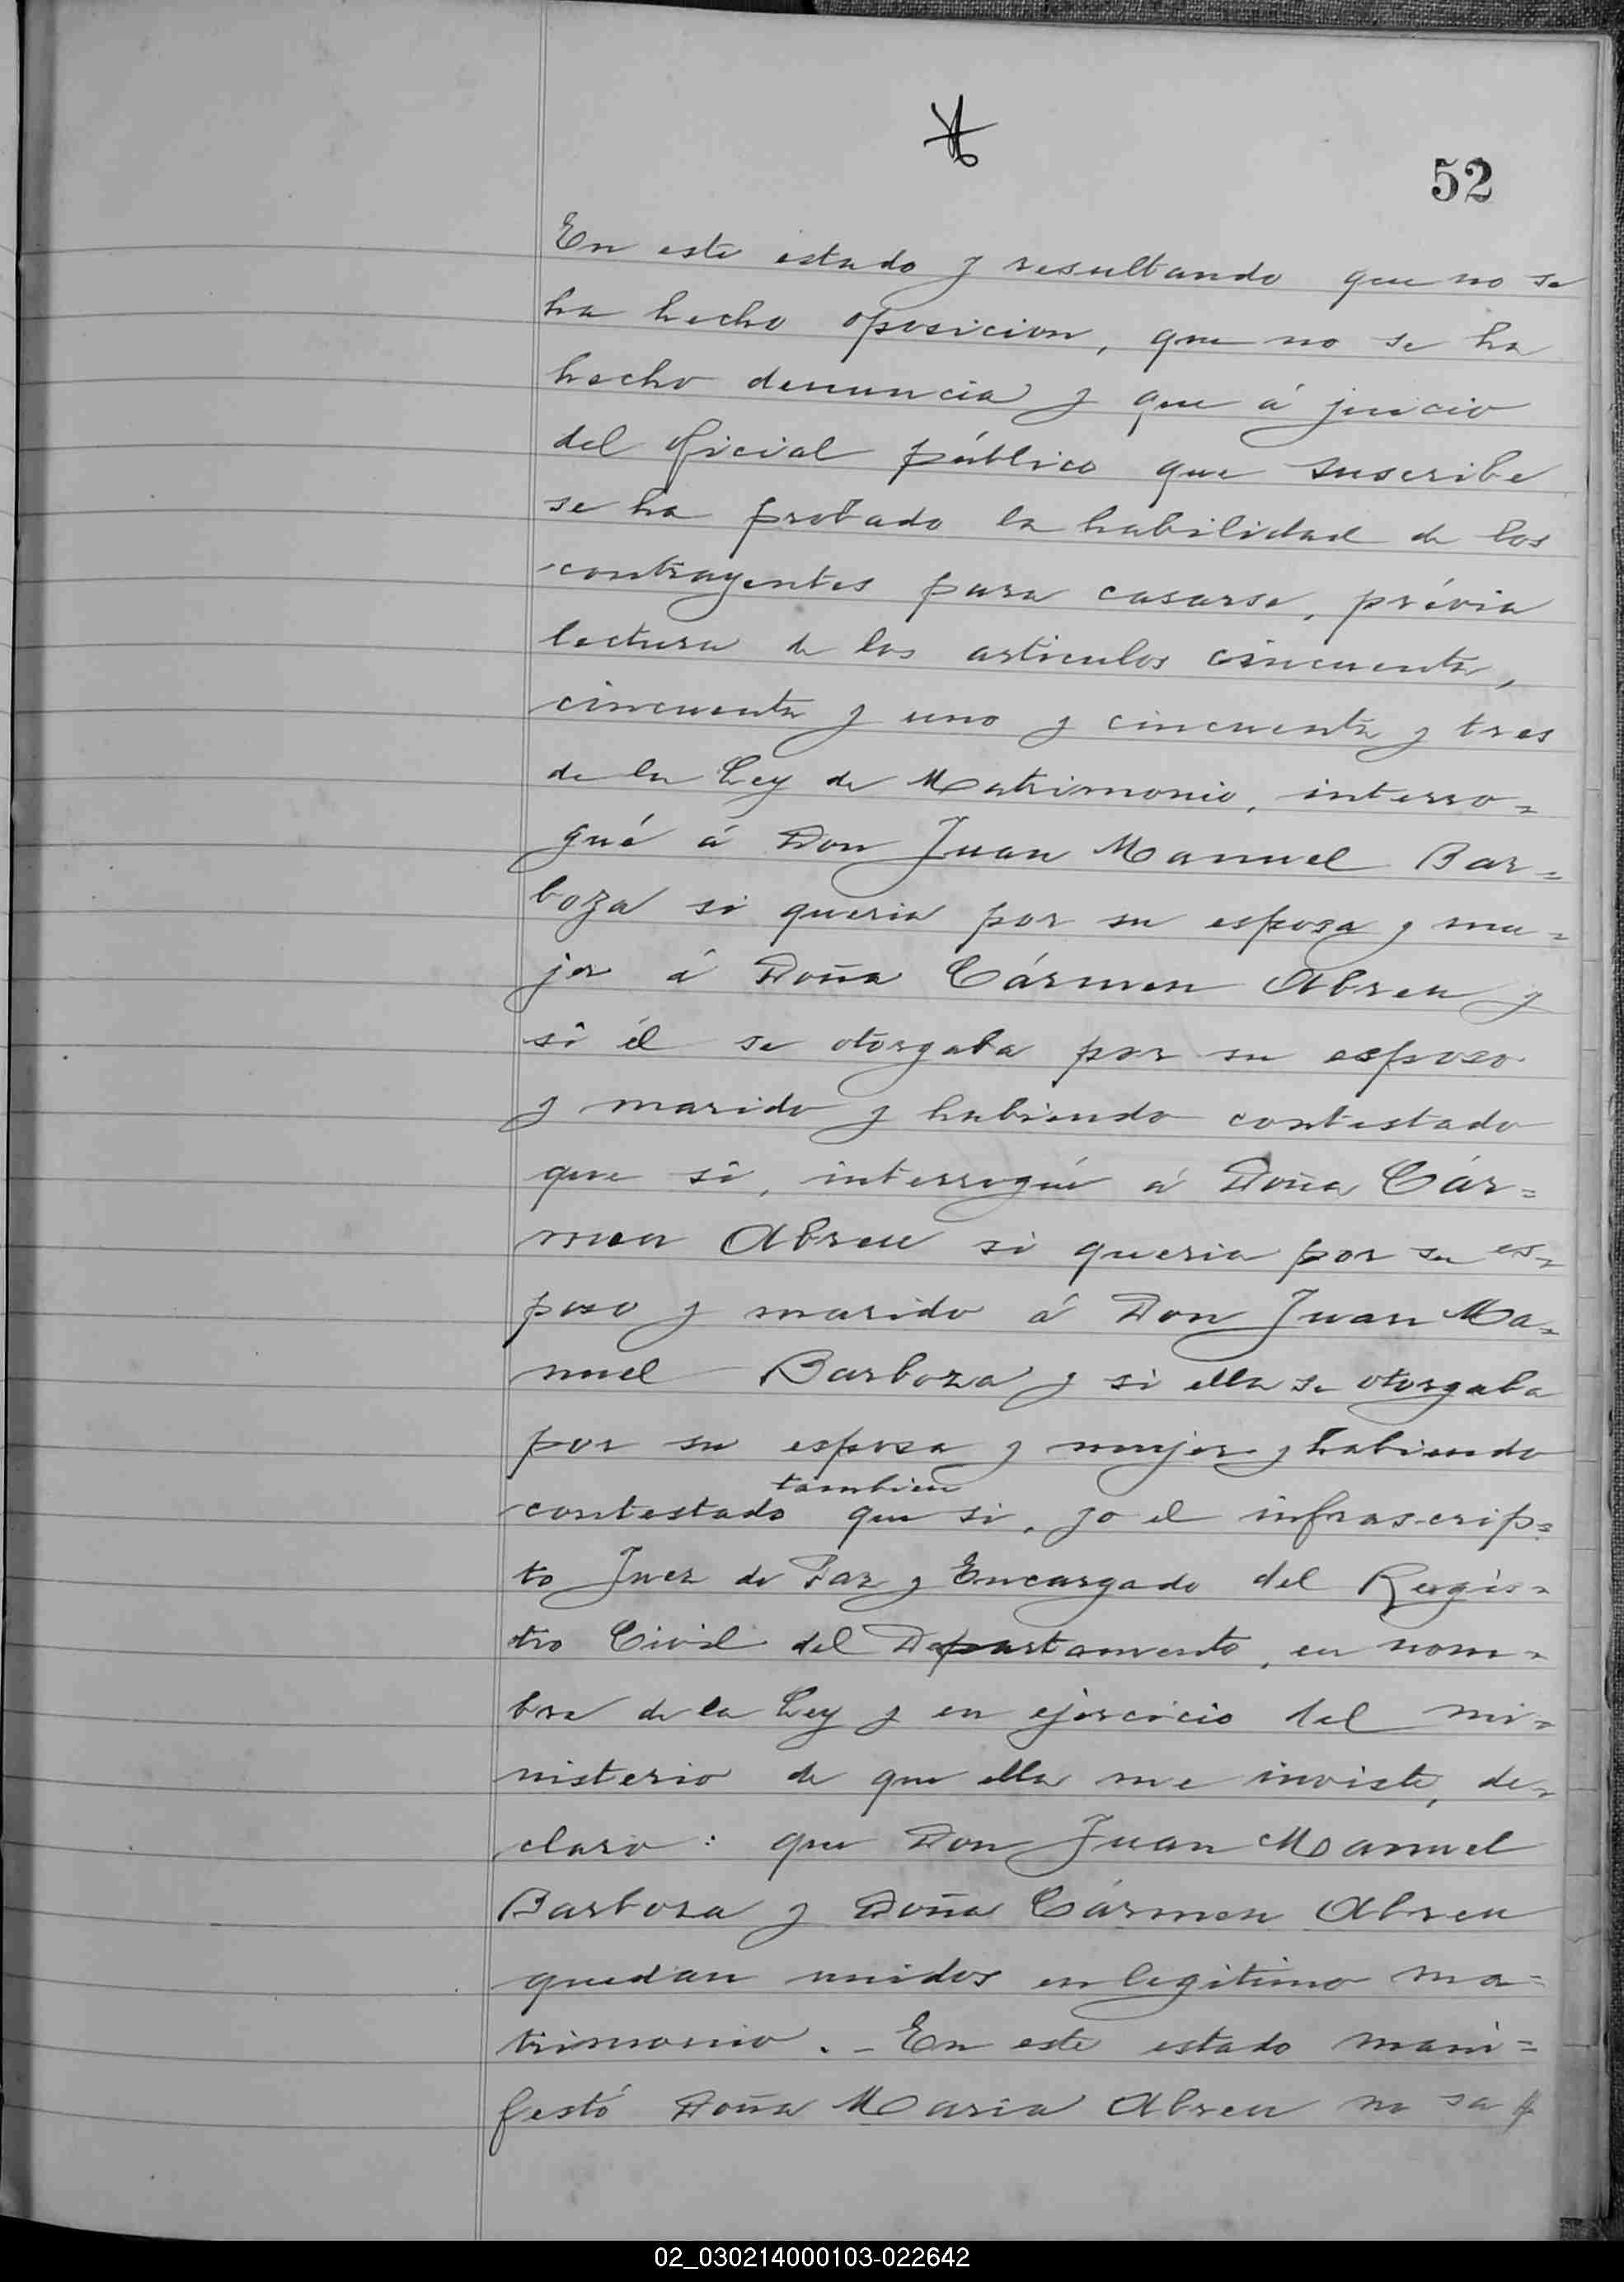 52
En este estado y resultando que no se
ha hecho oposicion, que no se ha
hecho denuncia y que á juicio
del oficial público que suscribe
se ha probado la habilidad de los
contrayentes para casarse, prévia
lectura de los articulos cincuenta,
cincuenta y uno y cincuenta y tres
de la Ley de Matrimonio, interro=
gué á Don Juan Manuel Bar=
boza si queria por su esposa y mu=
jer á Doña Cármen Abreu y
si él se otorgaba por su esposo
y marido y habiendo contestado
que si, interrogué á Doña Cár=
men Abreu si queria por su es=
poso y marido á Don Juan Ma=
nuel Barboza y si ella se otorgaba
por su esposa y mujer y habiendo
tambien
contestado que si, yo el infrascrip=
to Juez de Paz y Encargado del Regis=
tro Civil del Departamento, en nom=
bre de la Ley y en ejercicio del mi=
nisterio de que ella me inviste, de=
claro: que Don Juan Manuel
Barboza y Doña Cármen Abreu
quedan unidos en legitimo ma=
trimonio. - En este estado mani=
festó Doña Maria Abreu no sa
02_030214000103-022642